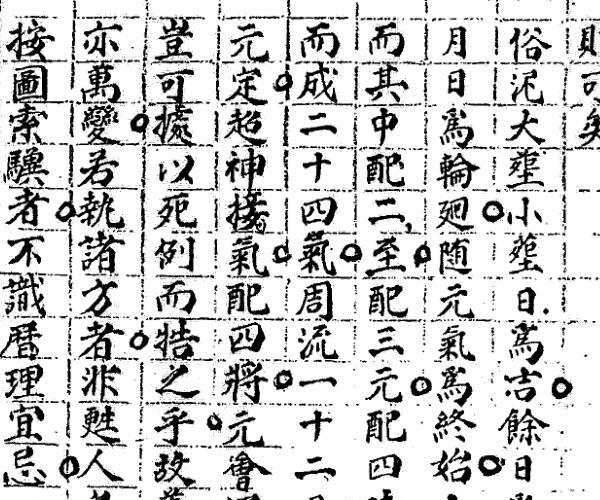 則可矣
俗泥大𡏖小𡏖日爲吉餘日
月日爲輪廻随元氣爲終始
而其中配二至配三元配四
而成二十四氣周流一十二
元定超神接氣配四將元會
豈可據以死例而牿之乎故
亦萬變若執諸方者非甦人
按圖索驥者不識曆理宜忌